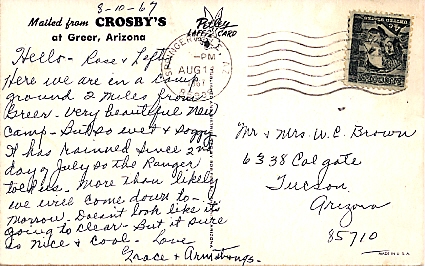 8-10-67
Mailed from CROSBY'S
at Greer, Arizona
Petley
LAFF CARD
PM
AUG 1
Hello - Rose & Lefty
Here we are in a camp
ground 2 miles from
Greer. Very beautiful New
Camp - But so wet & soggy
It has rained since 2nd
day of July so the Ranger
told us. More than likely
we will come down to-
morrow. Doesn't look like it's
going to clear - But it sure
is nice & cool. - Love
Grace & Armstrongs.
Mr & Mrs W. C. Brown
6338 Calgate
Tucson,
Arizona
85710
MADE IN U.S.A.